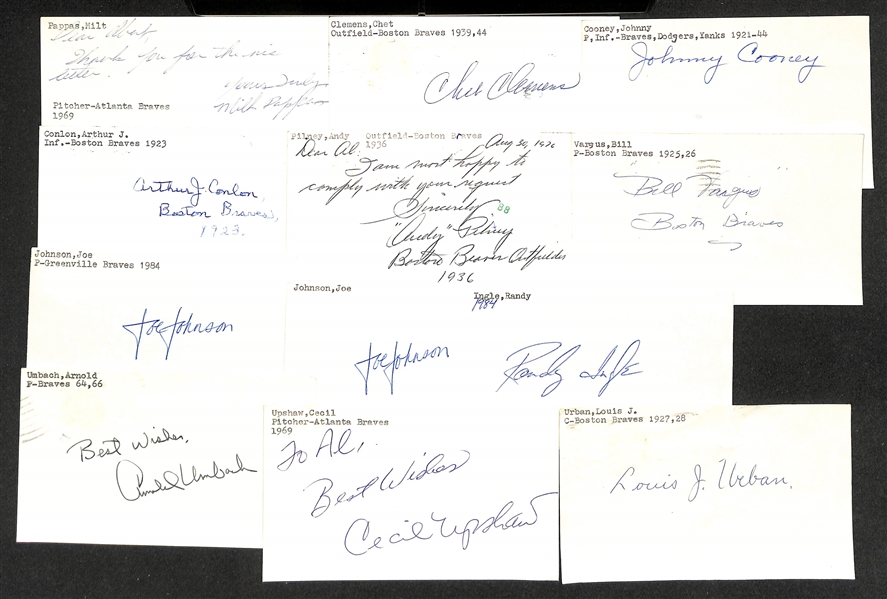 Pappas, Milt
Dear Albert,
Thank you for the nice
letter.
Yours Truly
Milt Pappas
Pitcher-Atlanta Braves
1969
Clemens,Chet
Outfield-Boston Braves 1939,44
Chet Clemens
Cooney, Johnny
P,Inf.-Braves,Dodgers,Yanks 1921-44
Johnny Cooney
Conlon,Arthur J.
Inf.-Boston Braves 1923
Arthur J. Conlon,
Boston Braves,
1923.
Pilney,Andy Outfield-Boston Braves
1936
Aug 30, 1976
Dear Al:
I am most happy to
comply with your request
Sincerely 88
"Andy" Pilney
Boston Beaver Outfielder
1936
Vargus,Bill
P-Boston Braves 1925,26
"Bill Vargus
Boston Braves
Johnson,Joe
P-Greenville Braves 1984
Joe Johnson
Johnson,Joe Ingle,Randy
1984
Joe Johnson Randy Ingle
Umbach,Arnold
P-Braves 64,66
Best Wishes,
Arnold Umbach
Upshaw,Cecil
Pitcher-Atlanta Braves
1969
To Al,
Best Wishes
Cecil Upshaw
Urban,Louis J.
C-Boston Braves 1927,28
Louis J. Urban.